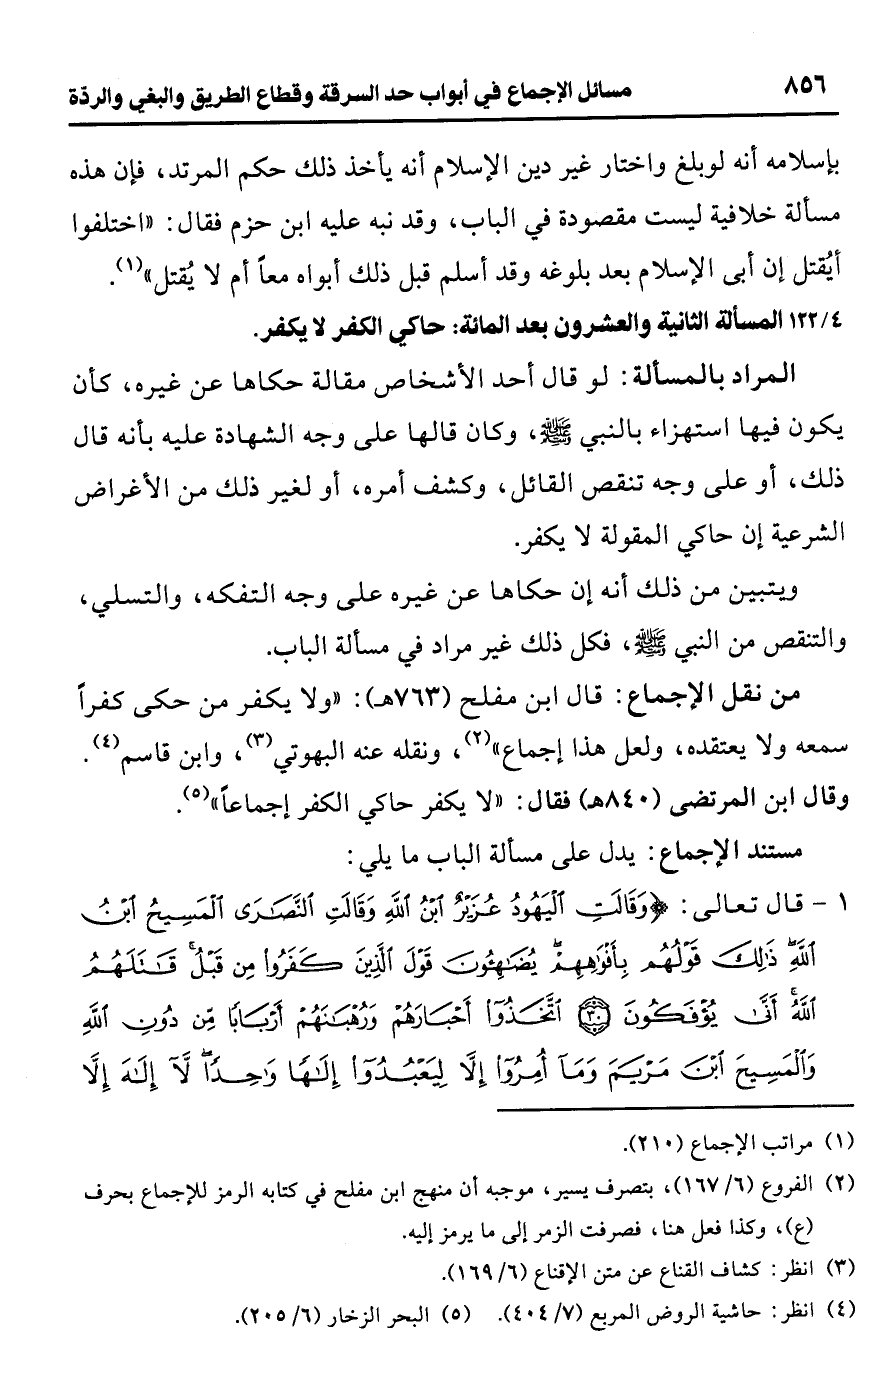 ٨٥٦ مسائل الإجماع في أبواب حد السرقة وقطاع الطريق والبغي والردّة
بإسلامه أنه لوبلغ واختار غير دين الإسلام أنه يأخذ ذلك حكم المرتد، فإن هذه
مسألة خلافية ليست مقصودة في الباب، وقد نبه عليه ابن حزم فقال: «اختلفوا
أيُقتل إن أبى الإسلام بعد بلوغه وقد أسلم قبل ذلك أبواه معاً أم لا يُقتل»(١).
١٢٢/٤ المسألة الثانية والعشرون بعد المائة: حاكي الكفر لا يكفر.
المراد بالمسألة: لو قال أحد الأشخاص مقالة حكاها عن غيره، كأن
يكون فيها استهزاء بالنبي ﷺ، وكان قالها على وجه الشهادة عليه بأنه قال
ذلك، أو على وجه تنقص القائل، وكشف أمره، أو لغير ذلك من الأغراض
الشرعية إن حاكي المقولة لا يكفر.
ويتبين من ذلك أنه إن حكاها عن غيره على وجه التفكه، والتسلي،
والتنقص من النبي ﷺ، فكل ذلك غير مراد في مسألة الباب.
من نقل الإجماع: قال ابن مفلح (٧٦٣هـ): «ولا يكفر من حكى كفراً
سمعه ولا يعتقده، ولعل هذا إجماع»(٢)، ونقله عنه البهوتي(٣)، وابن قاسم(٤).
وقال ابن المرتضى (٨٤٠هـ) فقال: «لا يكفر حاكي الكفر إجماعاً»(٥).
مستند الإجماع: يدل على مسألة الباب ما يلي:
١ - قال تعالى: ﴿وَقَالَتِ ٱلْيَهُودُ عُزَيْرٌ ٱبْنُ ٱللَّهِ وَقَالَتِ ٱلنَّصَـٰرَى ٱلْمَسِيحُ ٱبْنُ
ٱللَّهِ ۖ ذَٰلِكَ قَوْلُهُم بِأَفْوَٰهِهِمْ ۖ يُضَـٰهِـُٔونَ قَوْلَ ٱلَّذِينَ كَفَرُوا۟ مِن قَبْلُ ۚ قَـٰتَلَهُمُ
ٱللَّهُ ۚ أَنَّىٰ يُؤْفَكُونَ ٣٠ ٱتَّخَذُوٓا۟ أَحْبَارَهُمْ وَرُهْبَـٰنَهُمْ أَرْبَابًا مِّن دُونِ ٱللَّهِ
وَٱلْمَسِيحَ ٱبْنَ مَرْيَمَ وَمَآ أُمِرُوٓا۟ إِلَّا لِيَعْبُدُوٓا۟ إِلَـٰهًا وَٰحِدًا ۖ لَّآ إِلَـٰهَ إِلَّا
(١) مراتب الإجماع (٢١٠).
(٢) الفروع (٦/ ١٦٧)، بتصرف يسير، موجبه أن منهج ابن مفلح في كتابه الرمز للإجماع بحرف
(ع)، وكذا فعل هنا، فصرفت الزمر إلى ما يرمز إليه.
(٣) انظر: كشاف القناع عن متن الإقناع (٦/ ١٦٩).
(٤) انظر: حاشية الروض المربع (٧/ ٤٠٤). (٥) البحر الزخار (٦/ ٢٠٥).